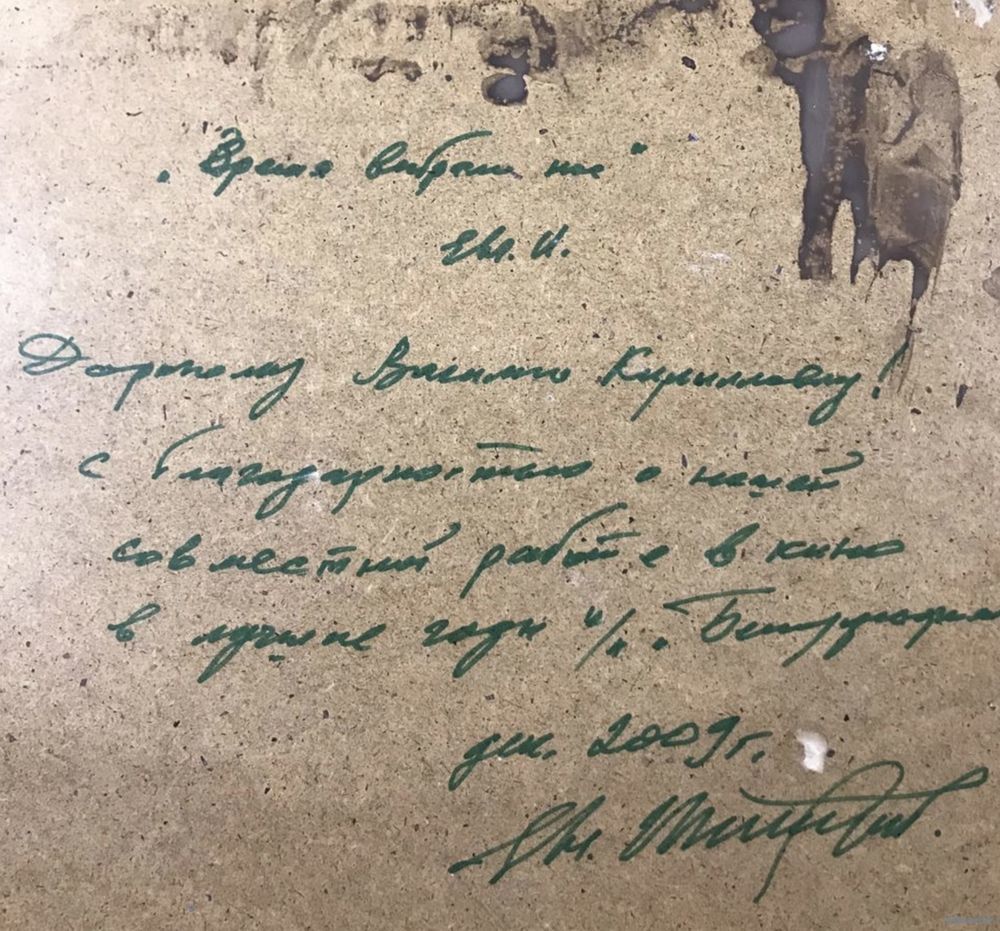 „Время выбрали нас"
Евг. И.
Дорогому Василию Кирилловичу!
с благодарностью о нашей
совместной работе в кино
в лучшие годы к/с. Беларусьфильм
дек. 2009 г.
Евг.